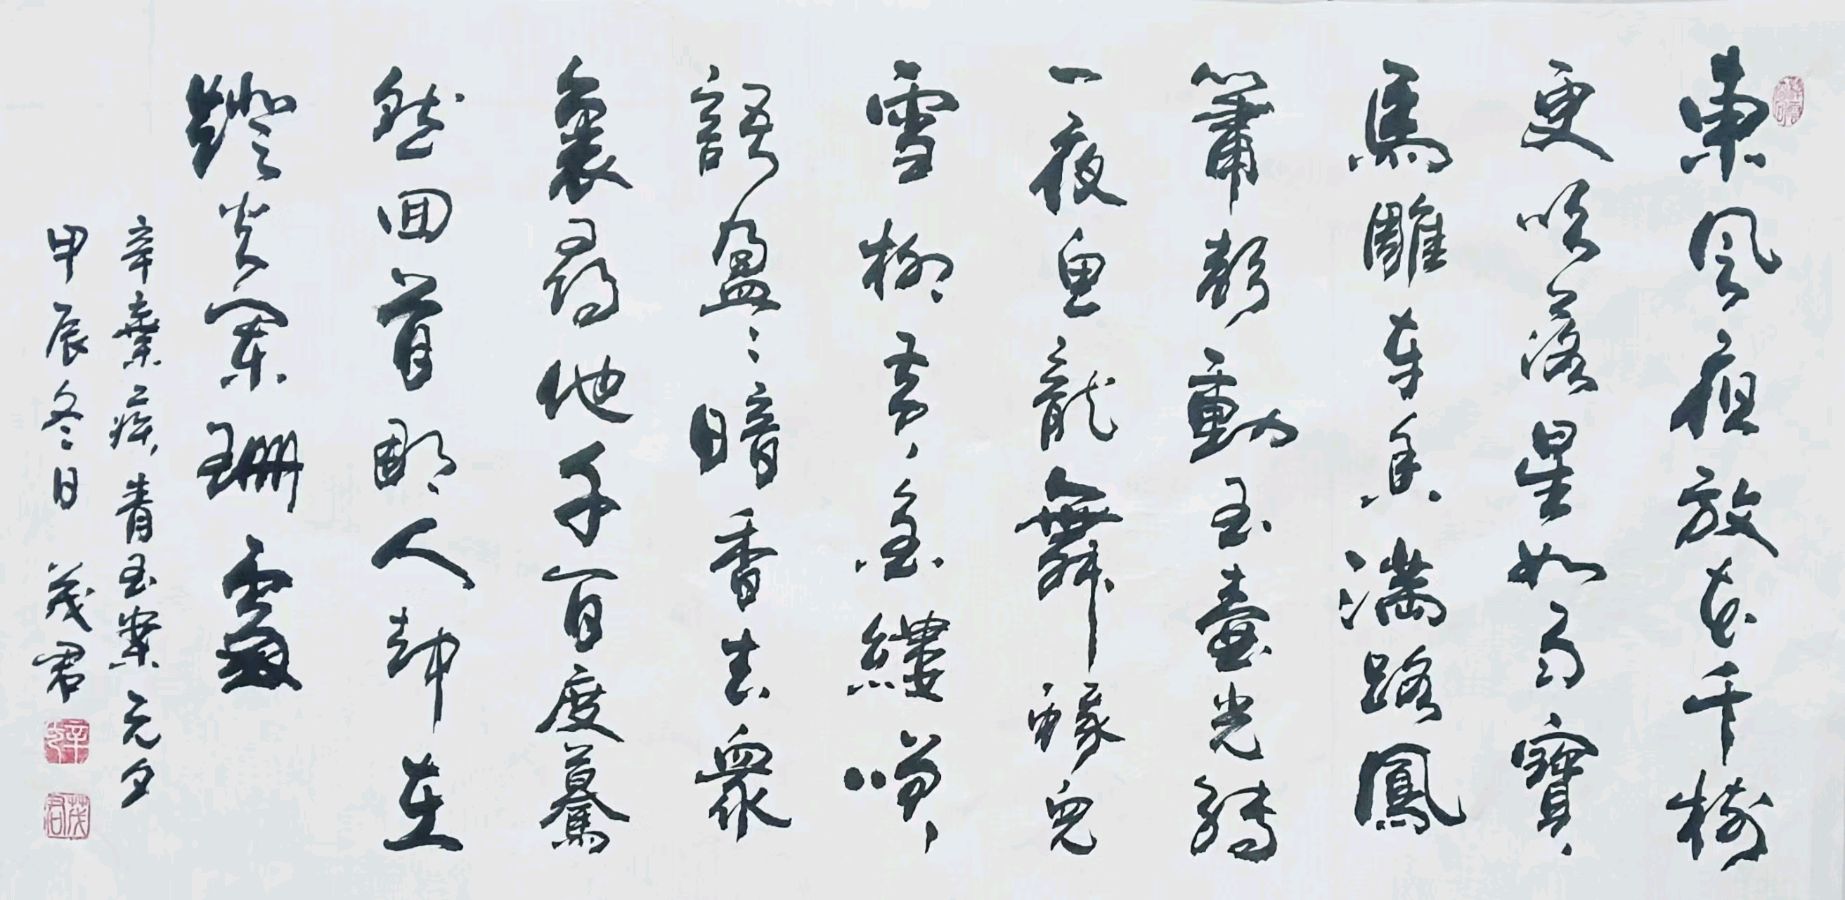 東風夜放花千樹
更吹落星如雨寶
馬雕車香滿路鳳
簫聲動玉壺光轉
一夜魚龍舞蛾兒
雪柳黃金縷笑
語盈〻暗香去眾
裏尋他千百度驀
然回首那人卻在
燈火闌珊處
辛棄疾青玉案元夕
甲辰冬日 茂君